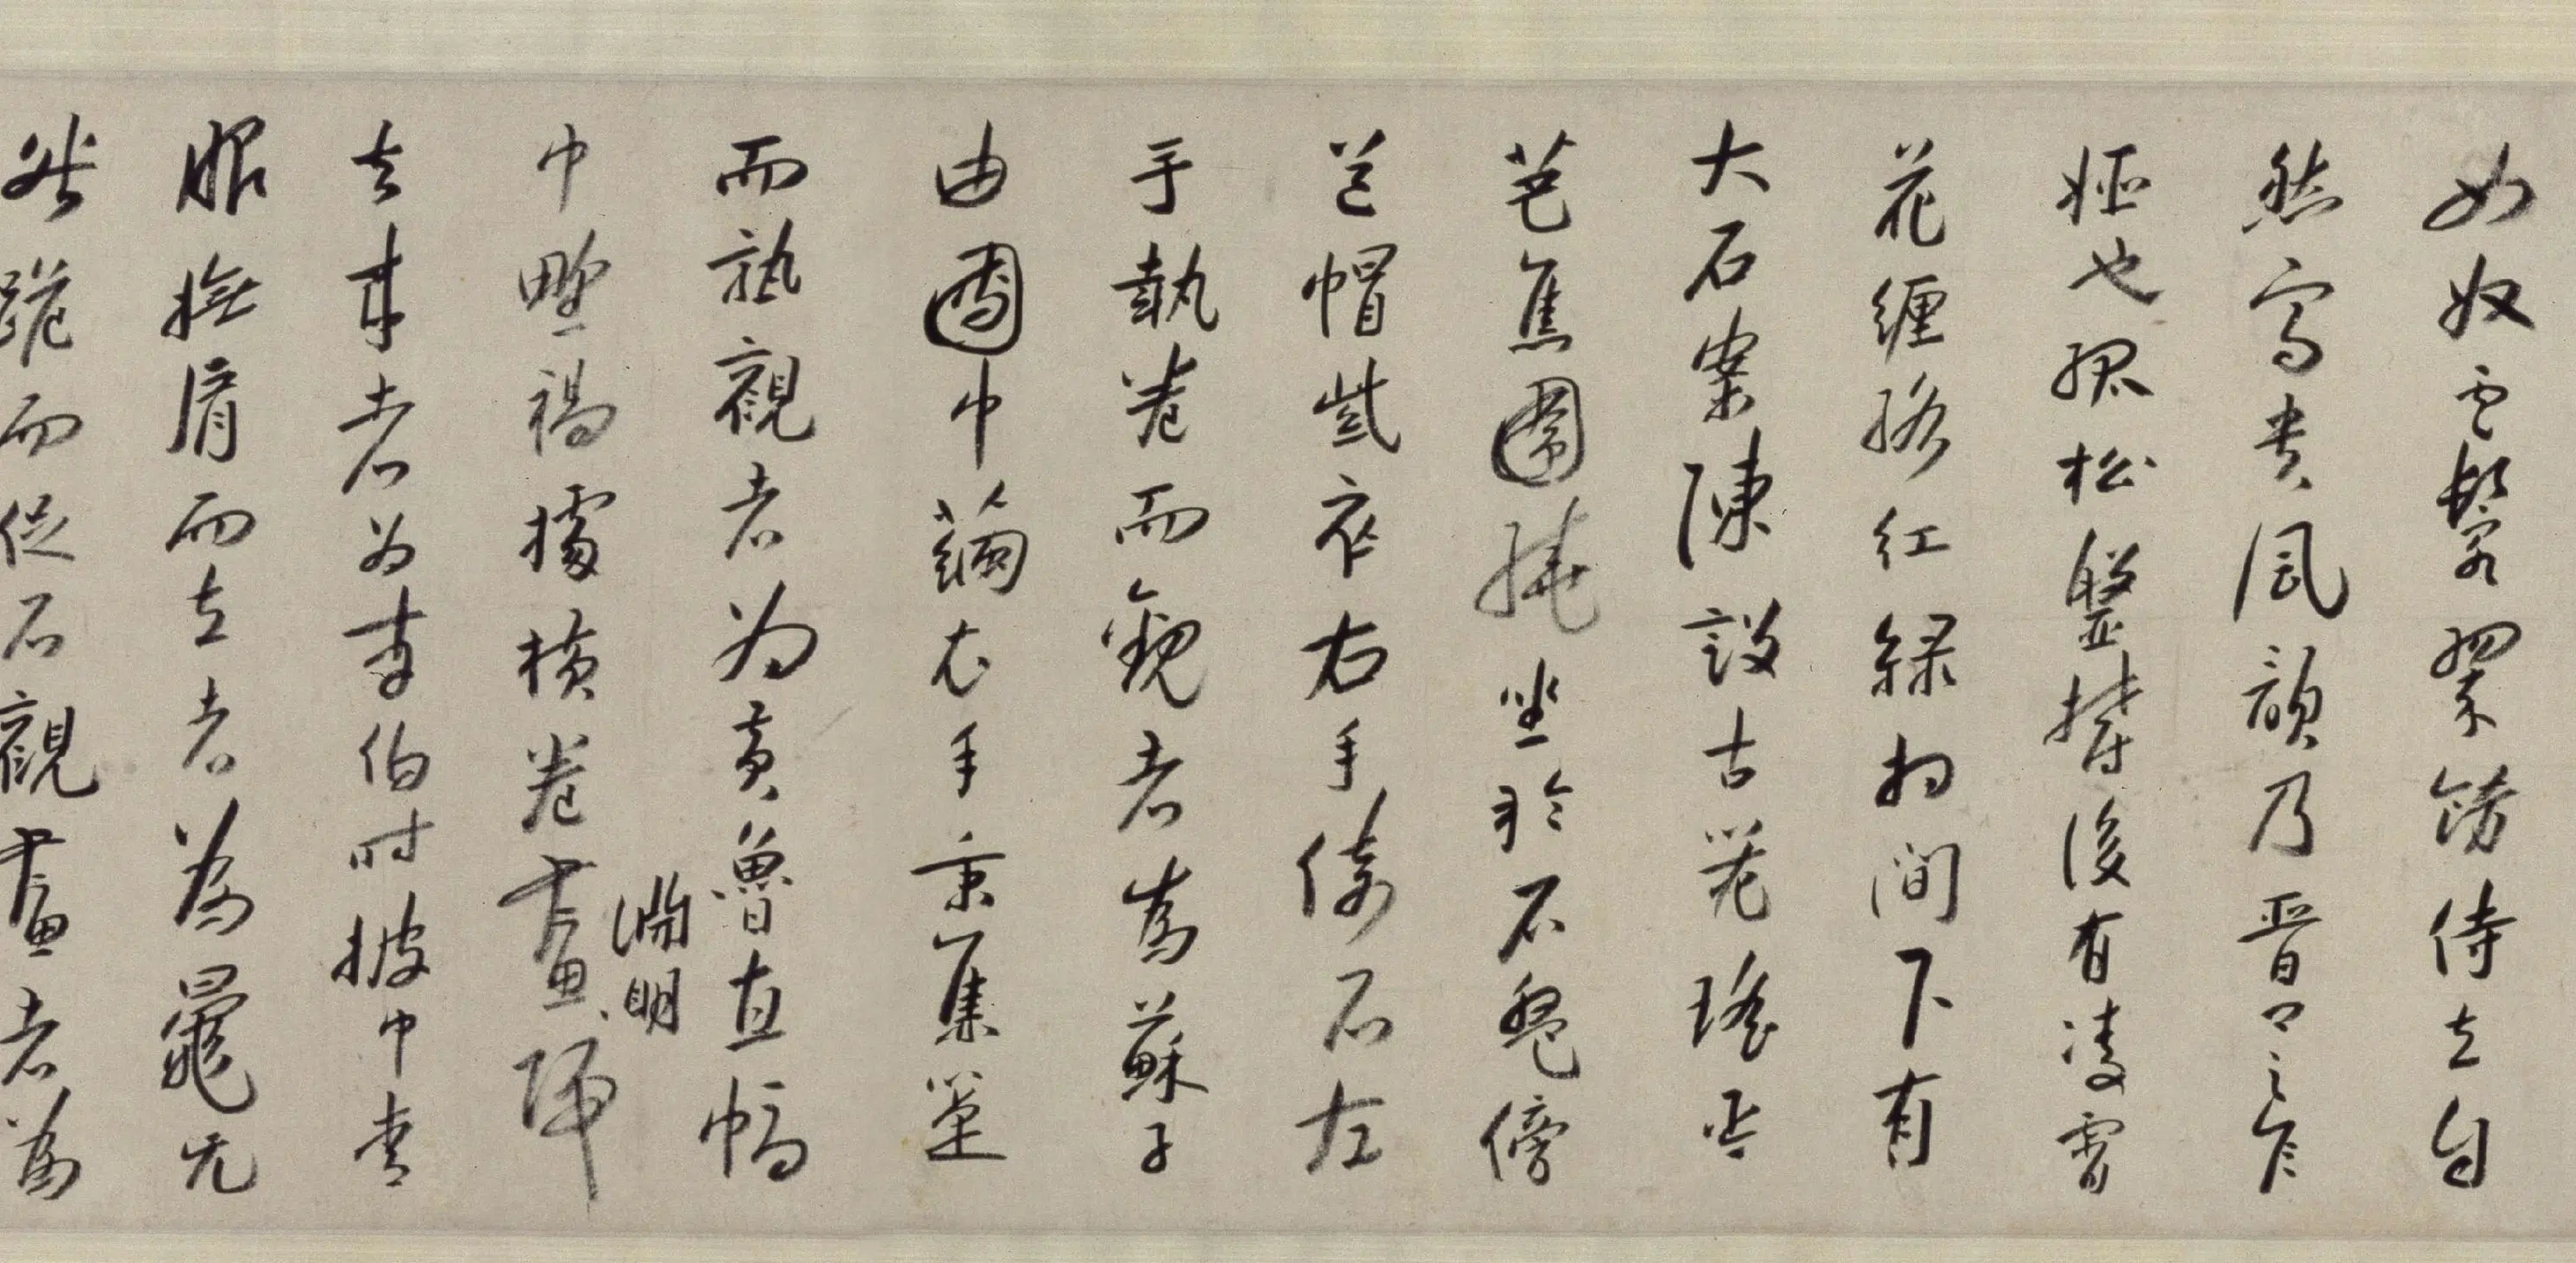 女奴雲鬟翠飾侍立自
然富貴風韻乃晉卿之家
姬也孤松盤鬱後有凌霄
花纏絡紅綠相間下有
大石案陳設古器瑤琴
芭蕉圍繞坐於石盤傍
道帽紫衣右手倚石左
手執卷而觀者為蘇子
由團巾繭衣手秉蕉箑
而熟觀者为黃魯直幅
巾野褐據橫卷畫淵明歸
去來者为李伯时披巾青
服撫肩而立者為晁无
咎跪而促石觀畫者為